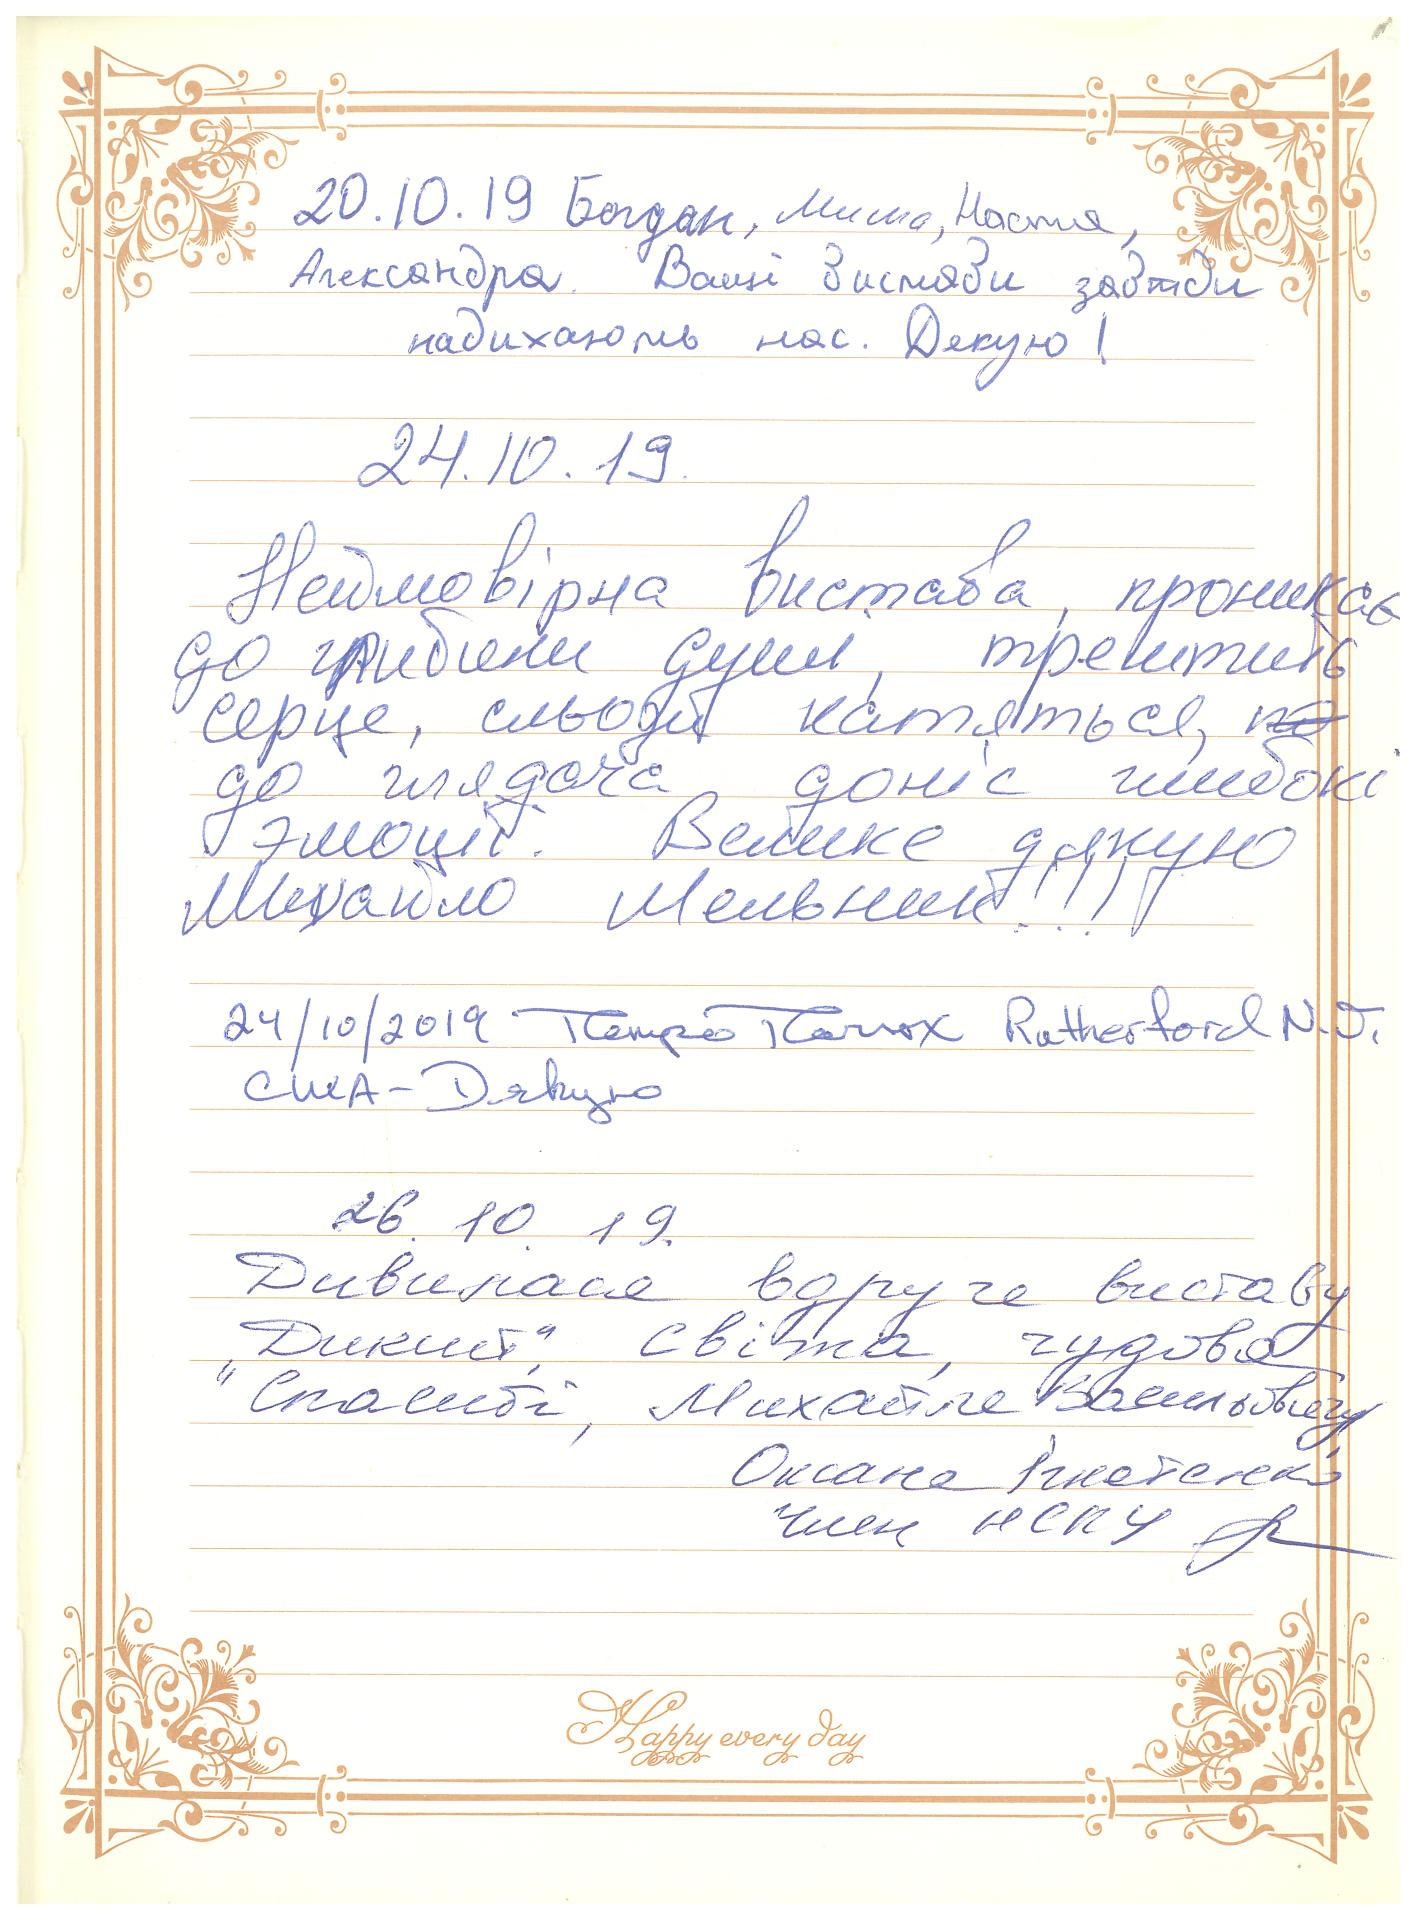 20.10.19 Богдан, Миша, Настя,
Александра. Ваші вистави завжди
надихають нас. Дякую!
24.10.19.
Неймовірна вистава, проникає
до глибини душі, трепетить
серце, сльози катяться, по
до глядача доніс глибокі
эмоції. Велике дякую
Михайло Мельник!!!
24/10/2019 Петро Rutherford N.J.
США - Дякую
26.10.19.
Дивилася вдруге виставу
"Дикий", свіжа, чудова
Спасибі, Михайле Васильовичу
Оксана Ігнатенко
Член НСПУ
Happy every day